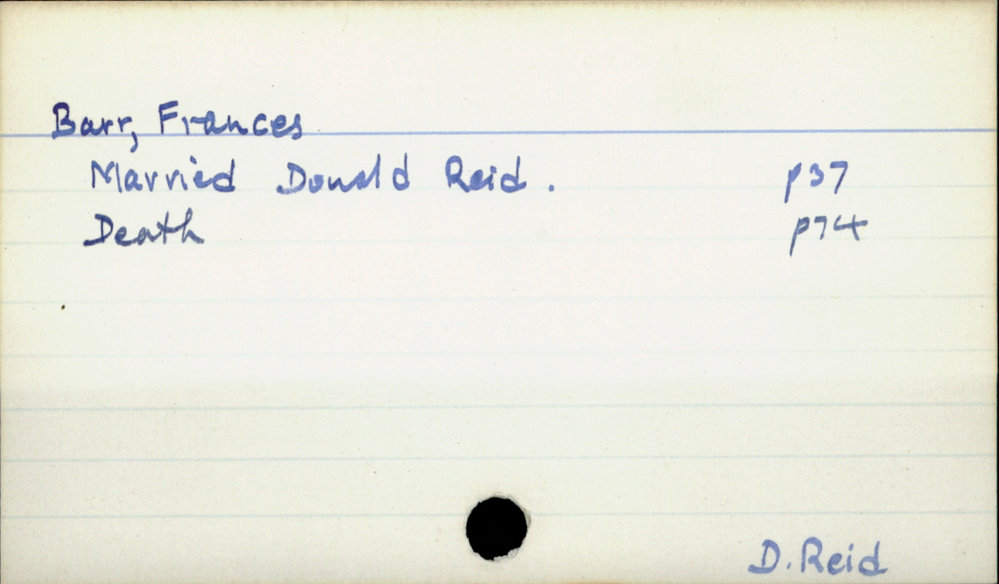 Barr, Frances
Married Donald Reid. p37
Death p74
D. Reid